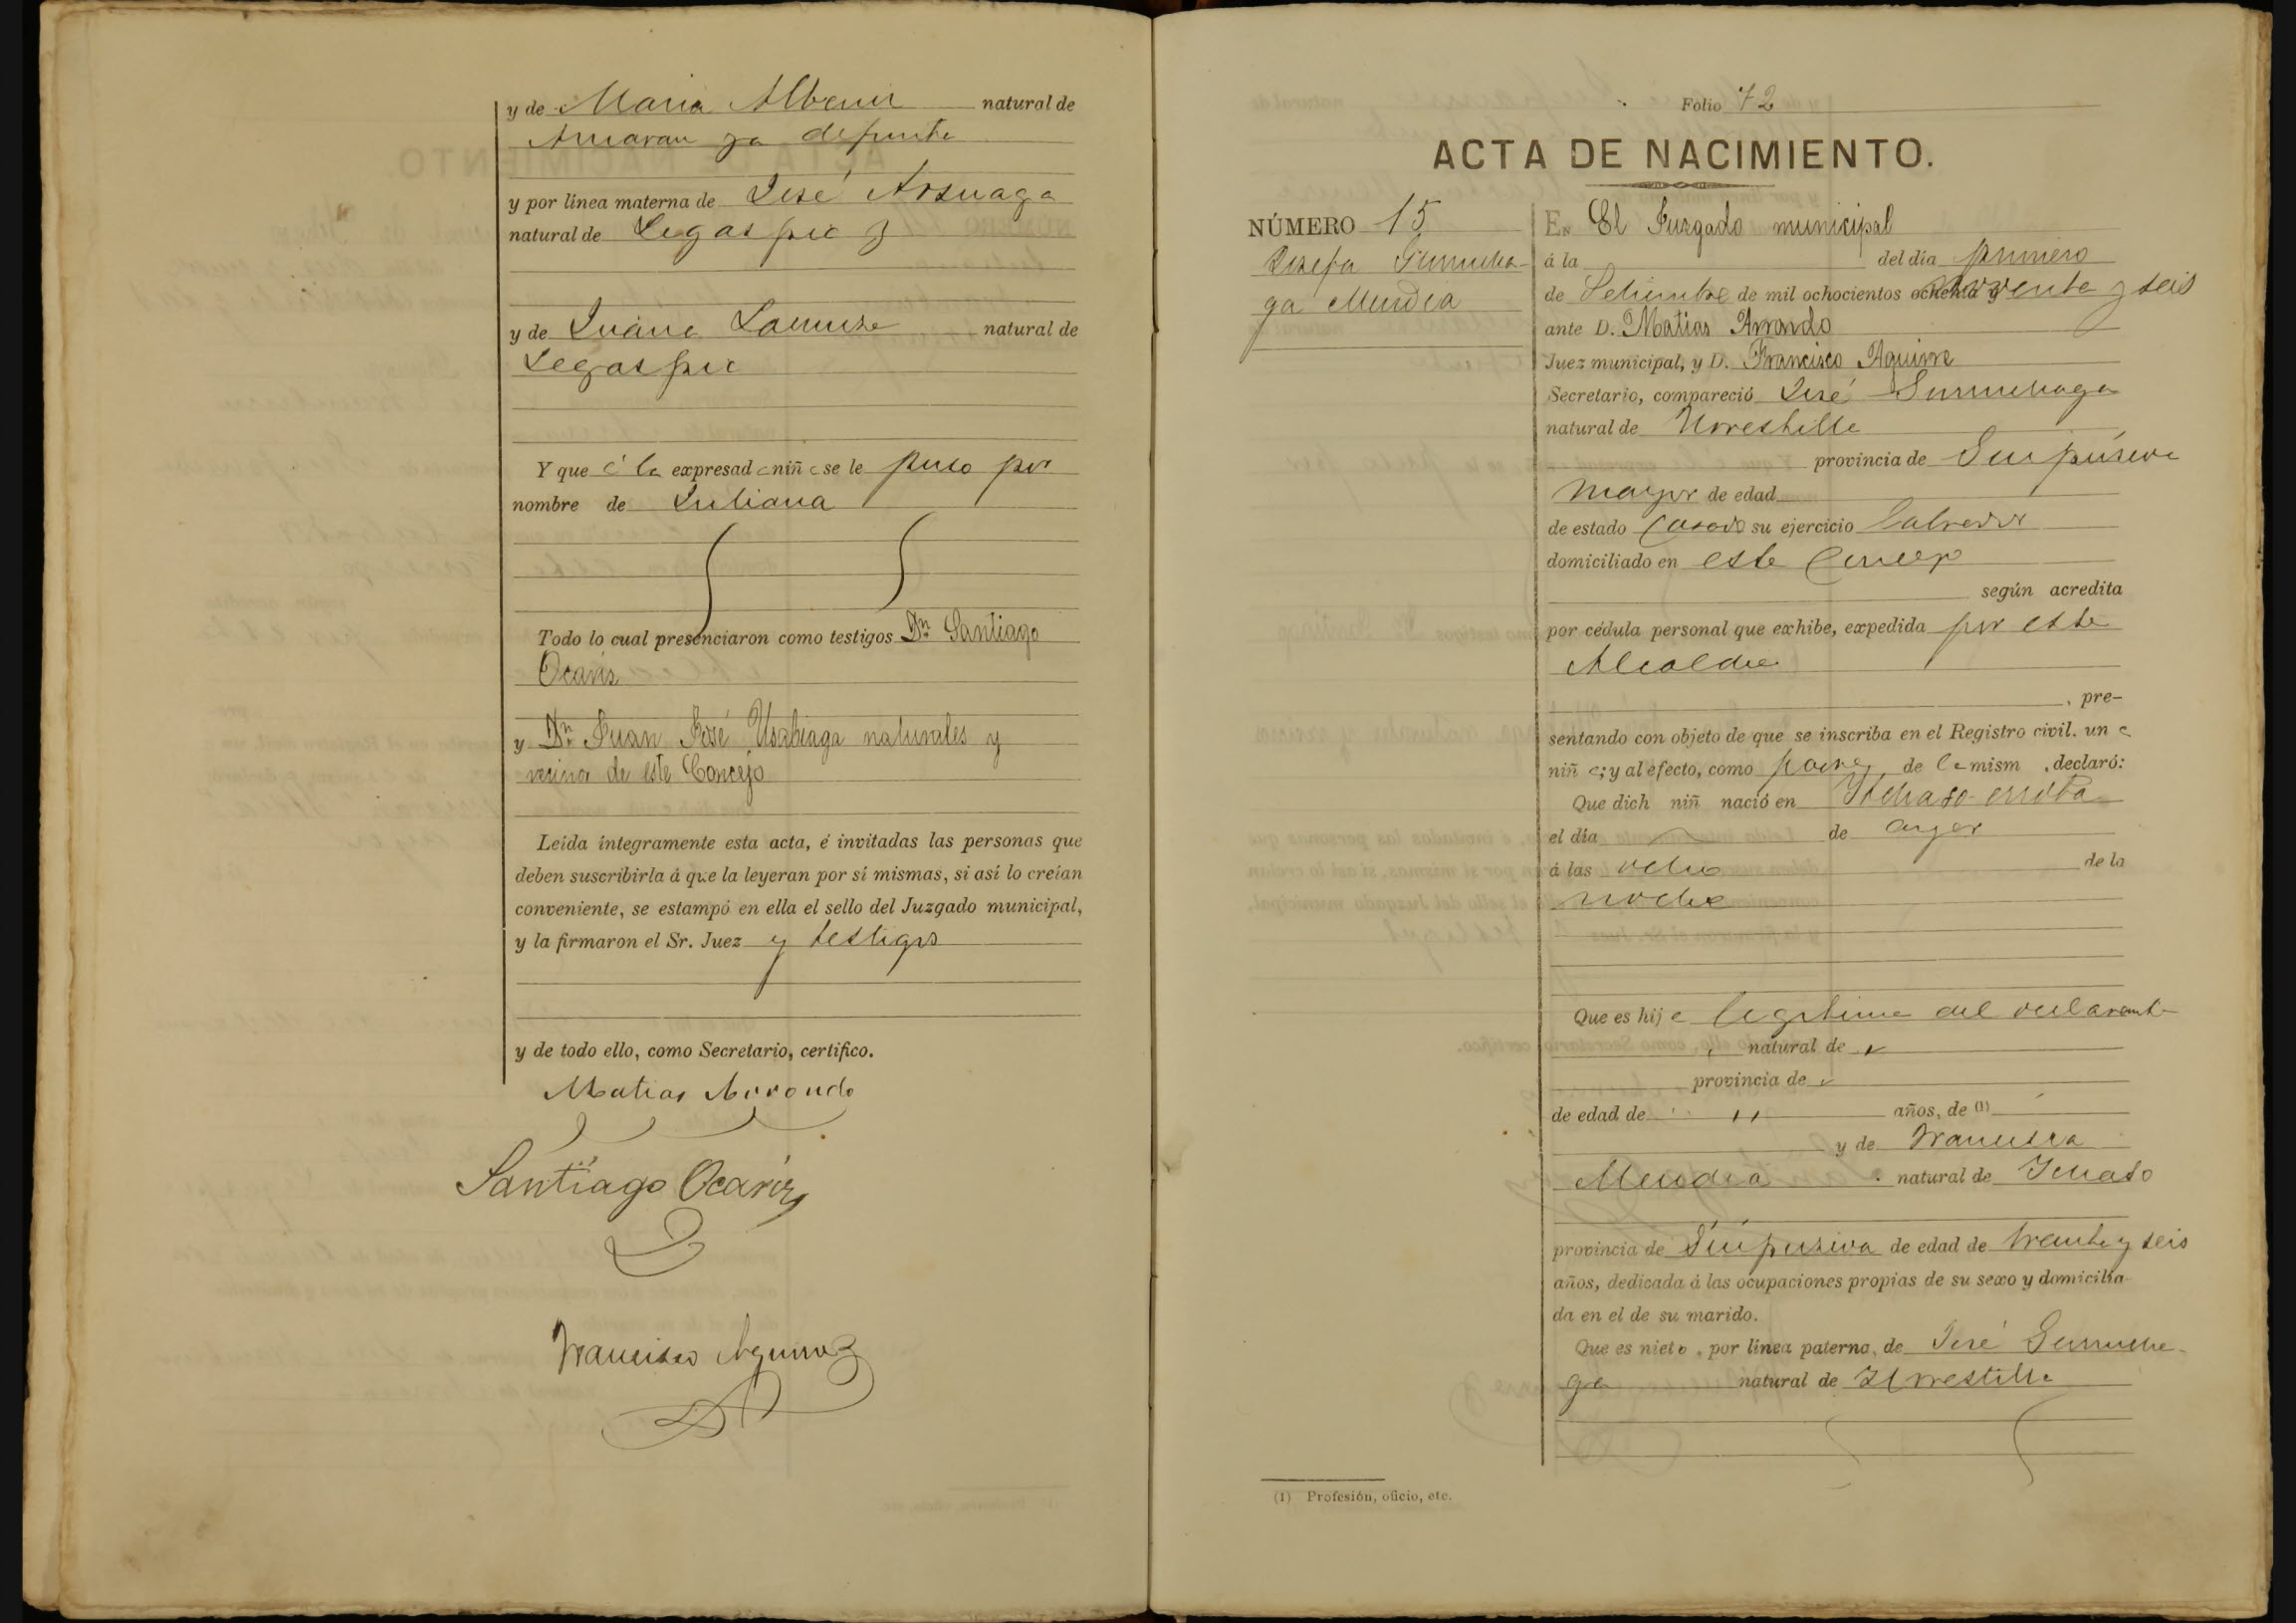 y de Maria Alberdi natural de
Amasa ya difunta
y por línea materna de José Arsuaga
natural de Legazpia y
y de Juana Lasa natural de
Legazpia
Y que á la expresada niña se le puso por
nombre de Juliana
Todo lo cual presenciaron como testigos Dn. Santiago
Ocariz
y Dn. Juan José Usabiaga naturales y
vecino de este Concejo
Leída íntegramente esta acta, é invitadas las personas que
deben suscribirla á que la leyeran por sí mismas, si así lo creían
conveniente, se estampó en ella el sello del Juzgado municipal,
y la firmaron el Sr. Juez y testigos
y de todo ello, como Secretario, certifico.
Matias Arrondo
Santiago Ocariz
Francisco Aguirre
Folio 72
ACTA DE NACIMIENTO.
NÚMERO 15
Josefa Gurrucha-
ga Mendia
En El Juzgado municipal
á la del día primero
de Setiembre de mil ochocientos ochenta y noventa y seis
ante D. Matias Arrondo
Juez municipal, y D. Francisco Aguirre
Secretario, compareció José Gurruchaga
natural de Urrestilla
provincia de Guipúzcoa
mayor de edad
de estado casado su ejercicio labrador
domiciliado en este Concejo
según acredita
por cédula personal que exhibe, expedida por esta
Alcaldia
, pre-
sentando con objeto de que se inscriba en el Registro civil. una
niña; y al efecto, como padre de la mism , declaró:
Que dich niñ nació en Ichaso-errota
el día de ayer
á las ocho de la
noche
Que es hija legitima del declarante
natural de
provincia de
de edad de " años, de (1)
y de Francisca
Mendia natural de Ichaso
provincia de Guipuzcoa de edad de treinta y seis
años, dedicada á las ocupaciones propias de su sexo y domicilia-
da en el de su marido.
Que es nieto, por línea paterna, de José Gurrucha-
ga natural de Urrestilla
(1) Profesión, oficio, etc.